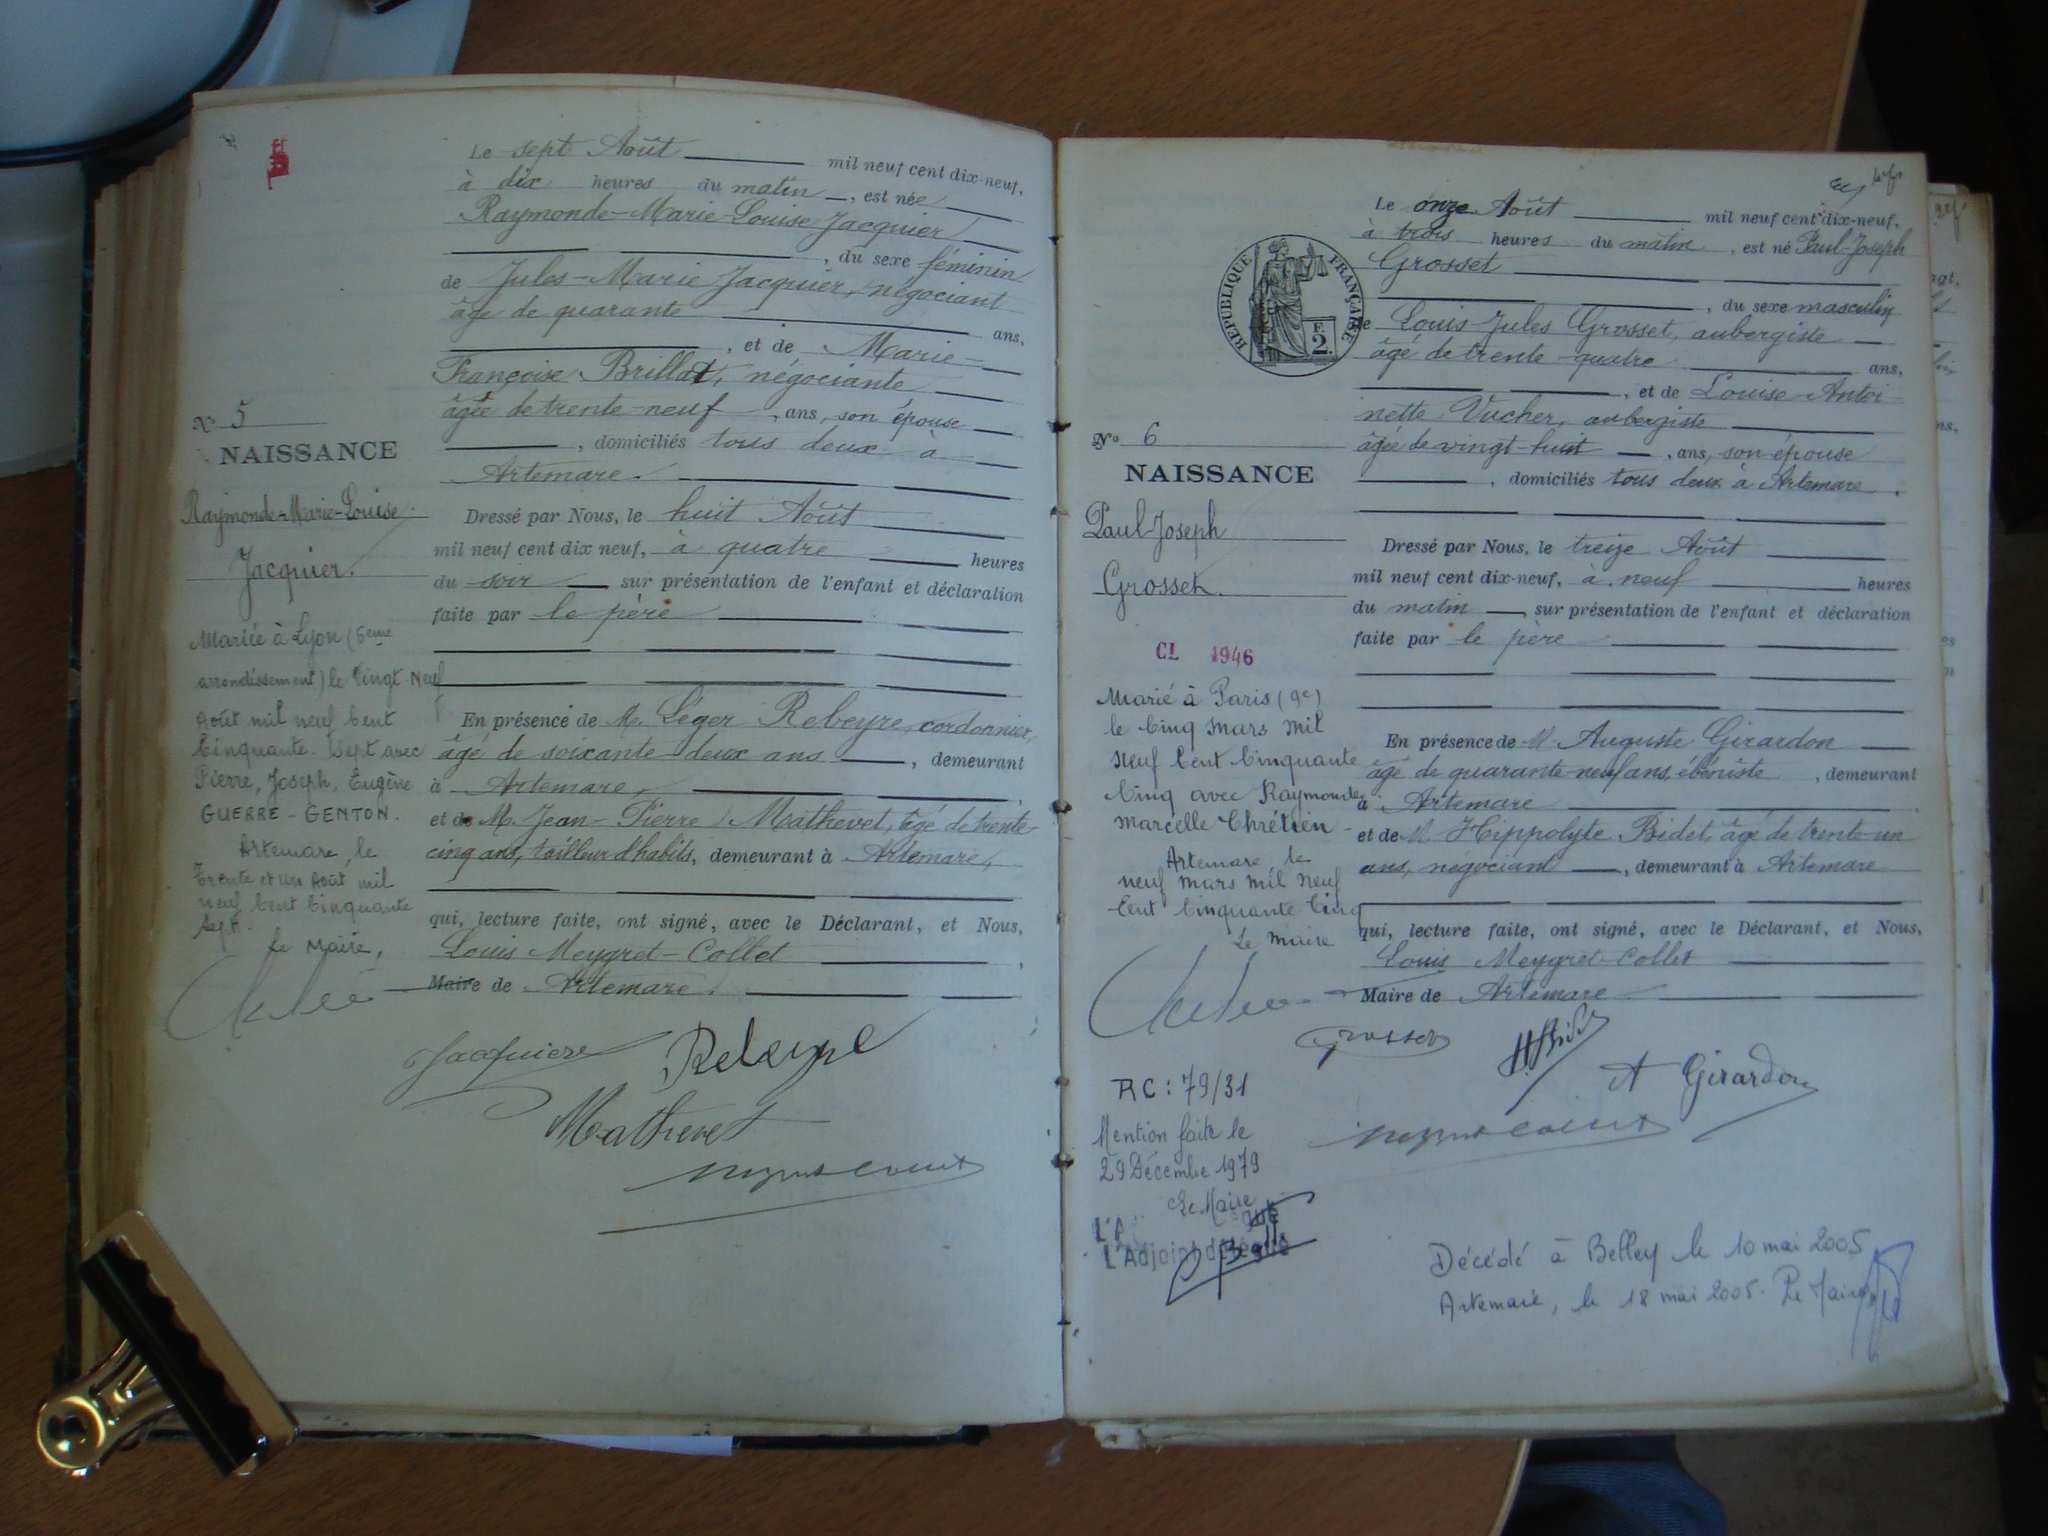 Le sept Août mil neuf cent dix-neuf,
à dix heures du matin, est née
Raymonde-Marie-Louise Jacquier
, du sexe féminin
de Jules-Marie Jacquier, négociant
âgé de quarante ans,
, et de Marie-
Françoise Brillat, négociante
âgée de trente-neuf, ans, son épouse
, domiciliés tous deux à
Artemare.
Dressé par Nous, le huit Août
mil neuf cent dix neuf, à quatre heures
du soir sur présentation de l'enfant et déclaration
faite par le père
En présence de M. Léger Rebeyre, cordonnier,
âgé de soixante-deux ans, demeurant
à Artemare,
et de M. Jean-Pierre Mathevet, âgé de trente-
cinq ans, tailleur d'habits, demeurant à Artemare,
qui, lecture faite, ont signé, avec le Déclarant, et Nous,
Louis Meygret-Collet,
Maire de Artemare.
Jacquier Rebeyre
Mathevet
N° 5
NAISSANCE
Raymonde-Marie-Louise
Jacquier.
Mariée à Lyon (6eme
arrondissement) le Vingt-Neuf
Août mil neuf Cent
Cinquante-Sept avec
Pierre, Joseph, Eugène
GUERRE-GENTON.
Artemare, le
Trente et un Août mil
neuf Cent Cinquante
Sept.
Le Maire,
Le onze Août mil neuf cent dix-neuf,
à trois heures du matin, est né Paul-Joseph
Grosset
, du sexe masculin
de Louis-Jules Grosset, aubergiste
âgé de trente-quatre ans,
, et de Louise-Antoi-
nette Vucher, aubergiste
âgée de vingt-huit, ans, son épouse
, domiciliés tous deux à Artemare.
Dressé par Nous, le treize Août
mil neuf cent dix-neuf, à neuf heures
du matin sur présentation de l'enfant et déclaration
faite par le père
En présence de M. Auguste Girardon
âgé de quarante-neuf ans, ébéniste, demeurant
à Artemare
et de M. Hippolyte Bidet, âgé de trente-un
ans, négociant, demeurant à Artemare
qui, lecture faite, ont signé, avec le Déclarant, et Nous,
Louis Meygret-Collet
Maire de Artemare
Grosset
A Girardon
RÉPUBLIQUE FRANÇAISE
2
N° 6
NAISSANCE
Paul-Joseph
Grosset.
CL 1946
Marié à Paris (9e)
le Cinq Mars Mil
Neuf Cent Cinquante
Cinq avec Raymonde
Marcelle Chrétien
Artemare le
neuf Mars Mil Neuf
Cent Cinquante Cinq
Le Maire
RC: 79/31
Mention faite le
29 Décembre 1979
Le Maire
L'Adjoint délégué
Décédé à Belley le 10 mai 2005
Artemare, le 18 mai 2005. Le Maire